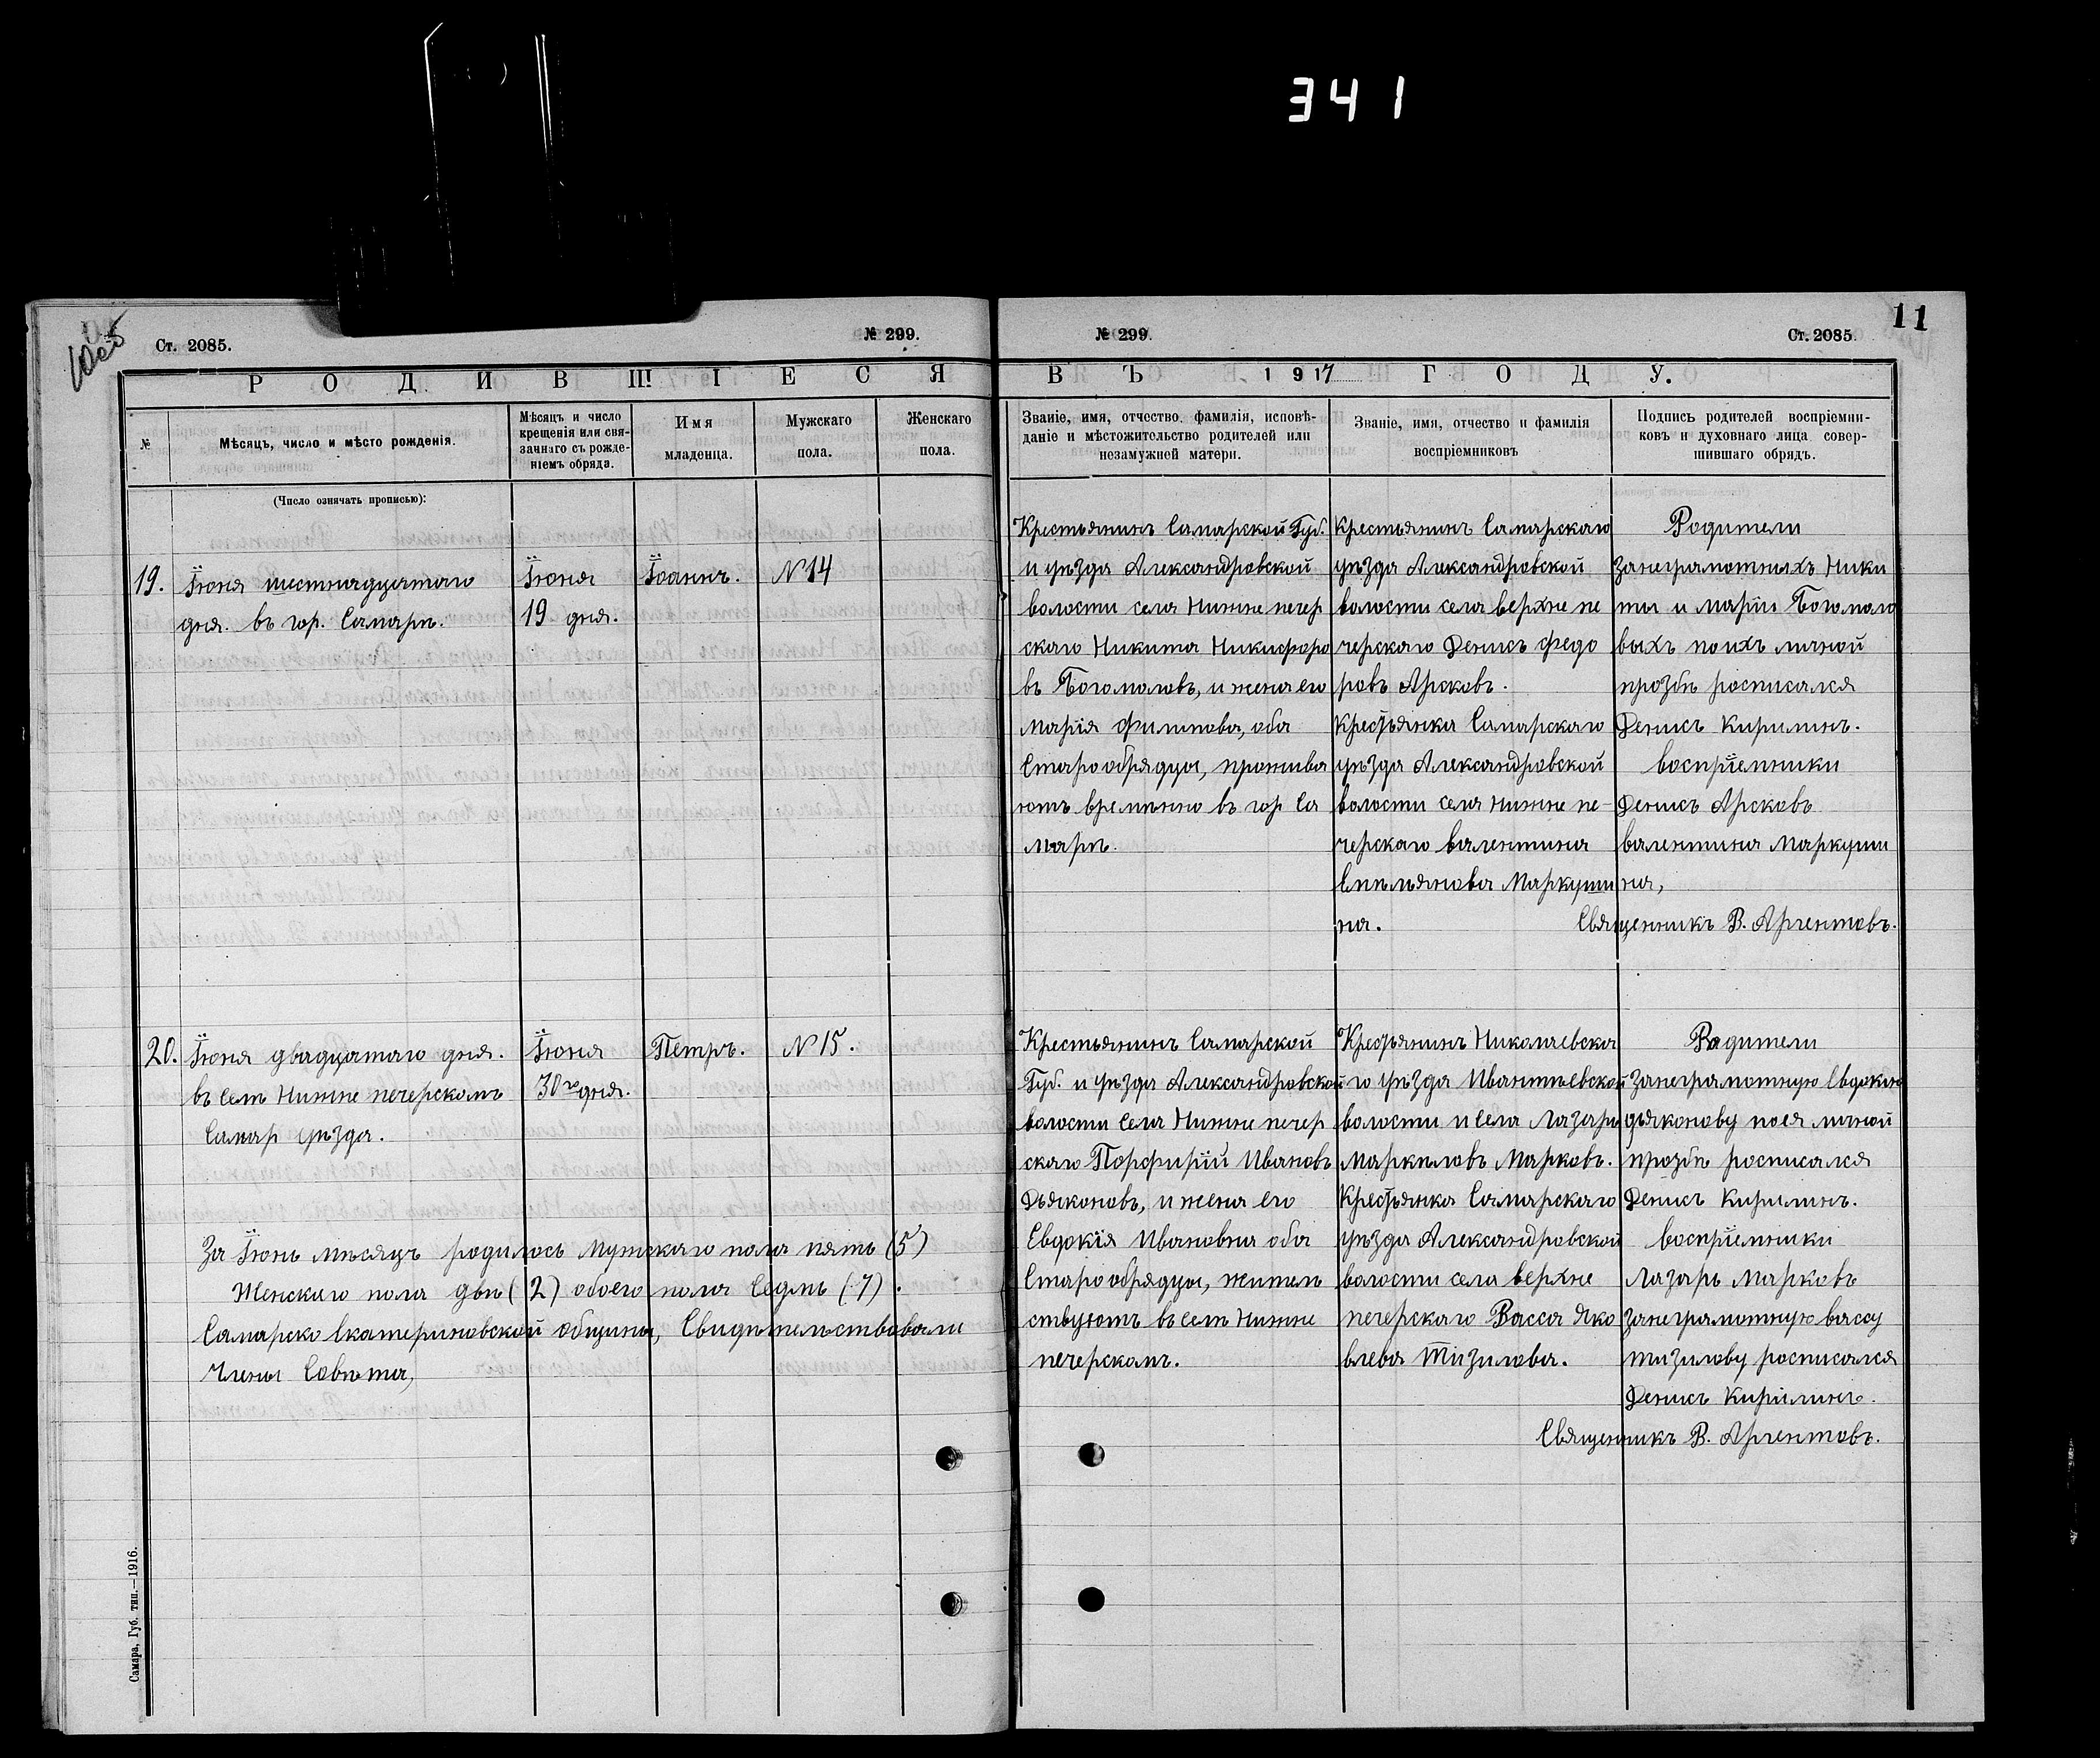 341
11
10об
Ст. 2085.
№ 299.
№ 299.
Ст. 2085.
РОДИВШІЕСЯ
ВЪ 1917 ГОДУ.
№
Мѣсяцъ, число и мѣсто рожденія.
Мѣсяцъ и число
крещенія или свя-
заннаго съ рожде-
ніемъ обряда.
Имя
младенца.
Мужскаго
пола.
Женскаго
пола.
Званіе, имя, отчество фамилія, исповѣ-
даніе и мѣстожительство родителей или
незамужней матери.
Званіе, имя, отчество и фамилія
воспріемниковъ
Подпись родителей воспріемни-
ковъ и духовнаго лица совер-
шившаго обрядъ.
(Число означать прописью):
19.
Іюня шестнадцатаго
дня. въ гор. Самарѣ.
Іюня
19 дня.
Іоаннъ.
N 14
Крестьянинъ Самарской Губ.
и уѣзда Александровской
волости села Нижне печер
скаго Никита Никифоро
въ Богомоловъ, и жена его
Марія Филипова, оба
Старообрядцы, прожива
ютъ временно въ гор Са
марѣ.
Крестьянинъ Самарскаго
уѣзда Александровской
волости села верхне пе
черскаго Денисъ Федо
ровъ Арсковъ.
Крестьянка Самарскаго
уѣзда Александровской
волости села Нижне пе-
черскаго Валентина
Емельянова Маркуши
на.
Родители
Занеграмотныхъ Ники
ты и Маріи Богомоло
выхъ поихъ личной
прозбѣ росписался
Денисъ Кирилинъ.
воспріемники
Денисъ Арсковъ
валентина Маркуши
на,
Священникъ В. Аргентовъ.
20.
Іюня двадцатаго дня.
въ селѣ Нижне печерскомъ
Самар уѣзда.
Іюня
30го дня.
Петръ.
N 15.
Крестьянинъ Самарской
Губ. и уѣзда Александровской
волости села Нижне печер
скаго Порфирій Ивановъ
Дьяконовъ, и жена его
Евдокія Ивановна оба
Старообрядцы, житель
ствуютъ въ селѣ Нижне
печерскомъ.
Крестьянинъ Николаевска
го уѣзда Ивантѣевской
волости и села Лазарь
Маркѣловъ Марковъ.
Крестьянка Самарскаго
уѣзда Александровской
волости села верхне
печерскаго Васса Яко
влева Тизилова.
Родители
Занеграмотную Евдокію
дьяконову поея личной
прозбѣ росписался
Денисъ Кирилинъ.
воспріемники
Лазарь Марковъ
Занеграмотную вассу
тизилову росписался
Денисъ Кирилинъ.
Священникъ В. Аргентовъ.
За Іюнь мѣсяцъ родилось Мужскаго пола пять (5)
Женскаго пола двѣ (2) обоего пола Седмь (7).
Самарско Екатериновской общины, Свидѣтельствовали
Члены Совѣта,
Самара, Губ. тип.—1916.